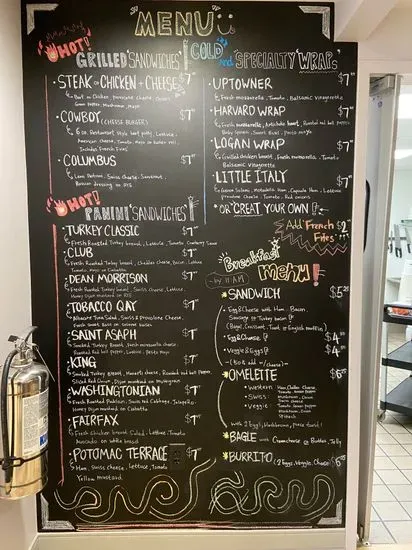 MENU
HOT!
GRILLED SANDWICHES
STEAK OR CHICKEN & CHEESE $7
Beef or Chicken, Provolone Cheese, Onion
Green Pepper, Mushroom, Mayo
COWBOY (CHEESE BURGER) $7
6 oz. Restaurant Style beef patty, Lettuce,
American cheese, Tomato, Mayo on Kaiser roll,
Includes French Fries
COLUMBUS $7
Swiss Cheese, Sauerkraut,
Russian dressing on RYE
HOT!
PANINI SANDWICHES!
TURKEY CLASSIC $7
Fresh Roasted Turkey breast, Lettuce, Tomato, Cranberry Sauce
CLUB $7
Fresh Roasted Turkey breast, Cheddar Cheese, Bacon, Lettuce
Tomato, Mayo on Ciabatta
DEAN MORRISON $7
Fresh Roasted Turkey breast, Swiss Cheese, Lettuce,
Honey Dijon mustard on RYE
TOBACCO QAY $7
Tuna Salad, Swiss & Provolone Cheese,
SAINT ASAPH $7
Smoked Turkey breast, Fresh mozzarella cheese,
Roasted Red bell pepper, Lettuce, Pesto Mayo
KING $7
Smoked Turkey Breast, cheese, Roasted Red bell pepper,
Sliced Red Onion, Dijon mustard on
WASHINGTONIAN $7
Fresh Roasted Swiss Red Cabbage, Jalapeño,
Honey Dijon mustard on Ciabatta
FAIRFAX $7
Fresh Chicken Salad, Lettuce, Tomato
Avocado on wheat bread
POTOMAC TERRACE $7
Ham, Swiss cheese, Lettuce, Tomato
Yellow mustard
COLD and SPECIALTY WRAPS
UPTOWNER $7
Fresh mozzarella, Tomato, Balsamic Vinaigrette
HARVARD WRAP $7
Fresh mozzarella, Artichoke heart, Roasted red bell pepper
Baby Spinach, Pesto Mayo
LOGAN WRAP $7
Grilled chicken breast, Fresh mozzarella, Tomato
Balsamic Vinaigrette
LITTLE ITALY $7
Genoa Salami, Mortadella Ham, Capicola Ham, Lettuce
Provolone Cheese, Tomato, Red onions
OR "CREAT YOUR OWN!"
Add French Fries $2
Breakfast MENU!
by 11 AM
SANDWICH $5.25
Egg & Cheese with Ham, Bacon
Sausage or Turkey bacon
(Bagel, Croissant, Toast or English Muffin)
Egg & Cheese $4
Veggie & Eggs $4
OMELETTE $6
Western
Swiss
Veggie
With 2 Eggs
BAGLE with Creamcheese or Butter, Jelly
BURRITO (2 Eggs, Veggie, Cheese) $6